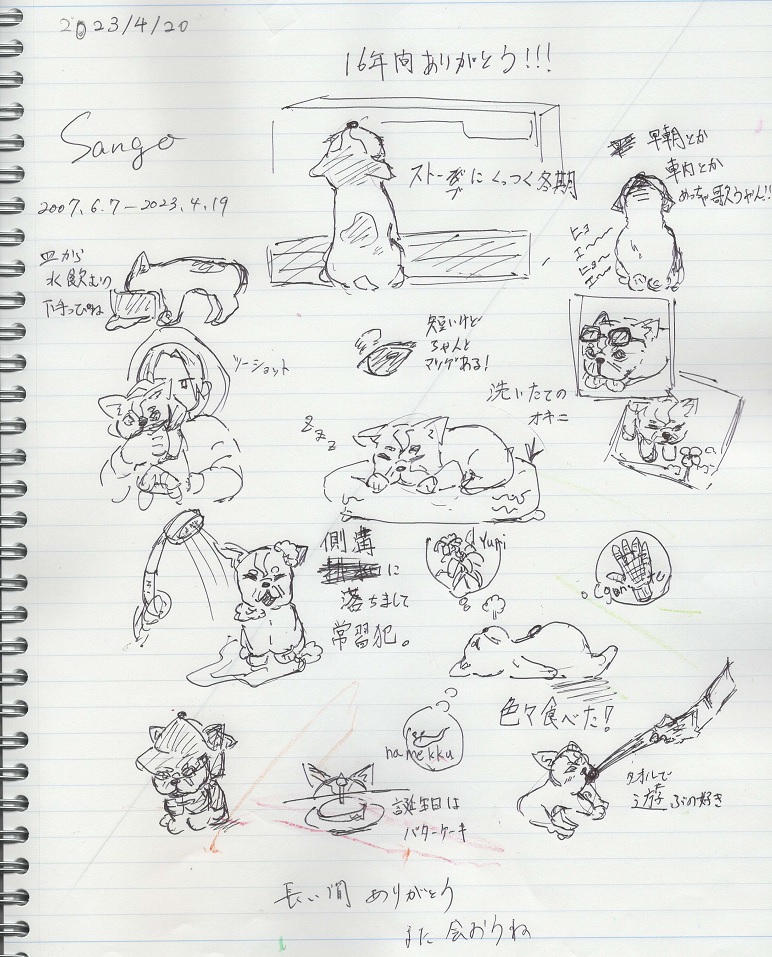 2023/4/20
16年間ありがとう!!!
Sango
2007.6.7-2023.4.19
ストーブにくっつく冬期
早朝とか
車内とか
めっちゃ歌うやん!!
ヒョ
エ〜〜
ヒョ〜
エ〜〜
皿から
水飲むの
下手っぴね
ツーショット
短いけど
ちゃんと
マツゲある!
洗いたての
オキニ
zzz
側溝
に
落ちまして
常習犯。
Yuri
色々食べた!
namekku
誕生日は
バターケーキ
タオルで
遊ぶの好き
長い間 ありがとう
また 会おうね